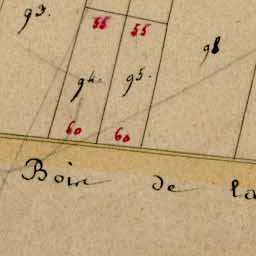 93.
55 55
94. 95. 98
60 60
Bois de la